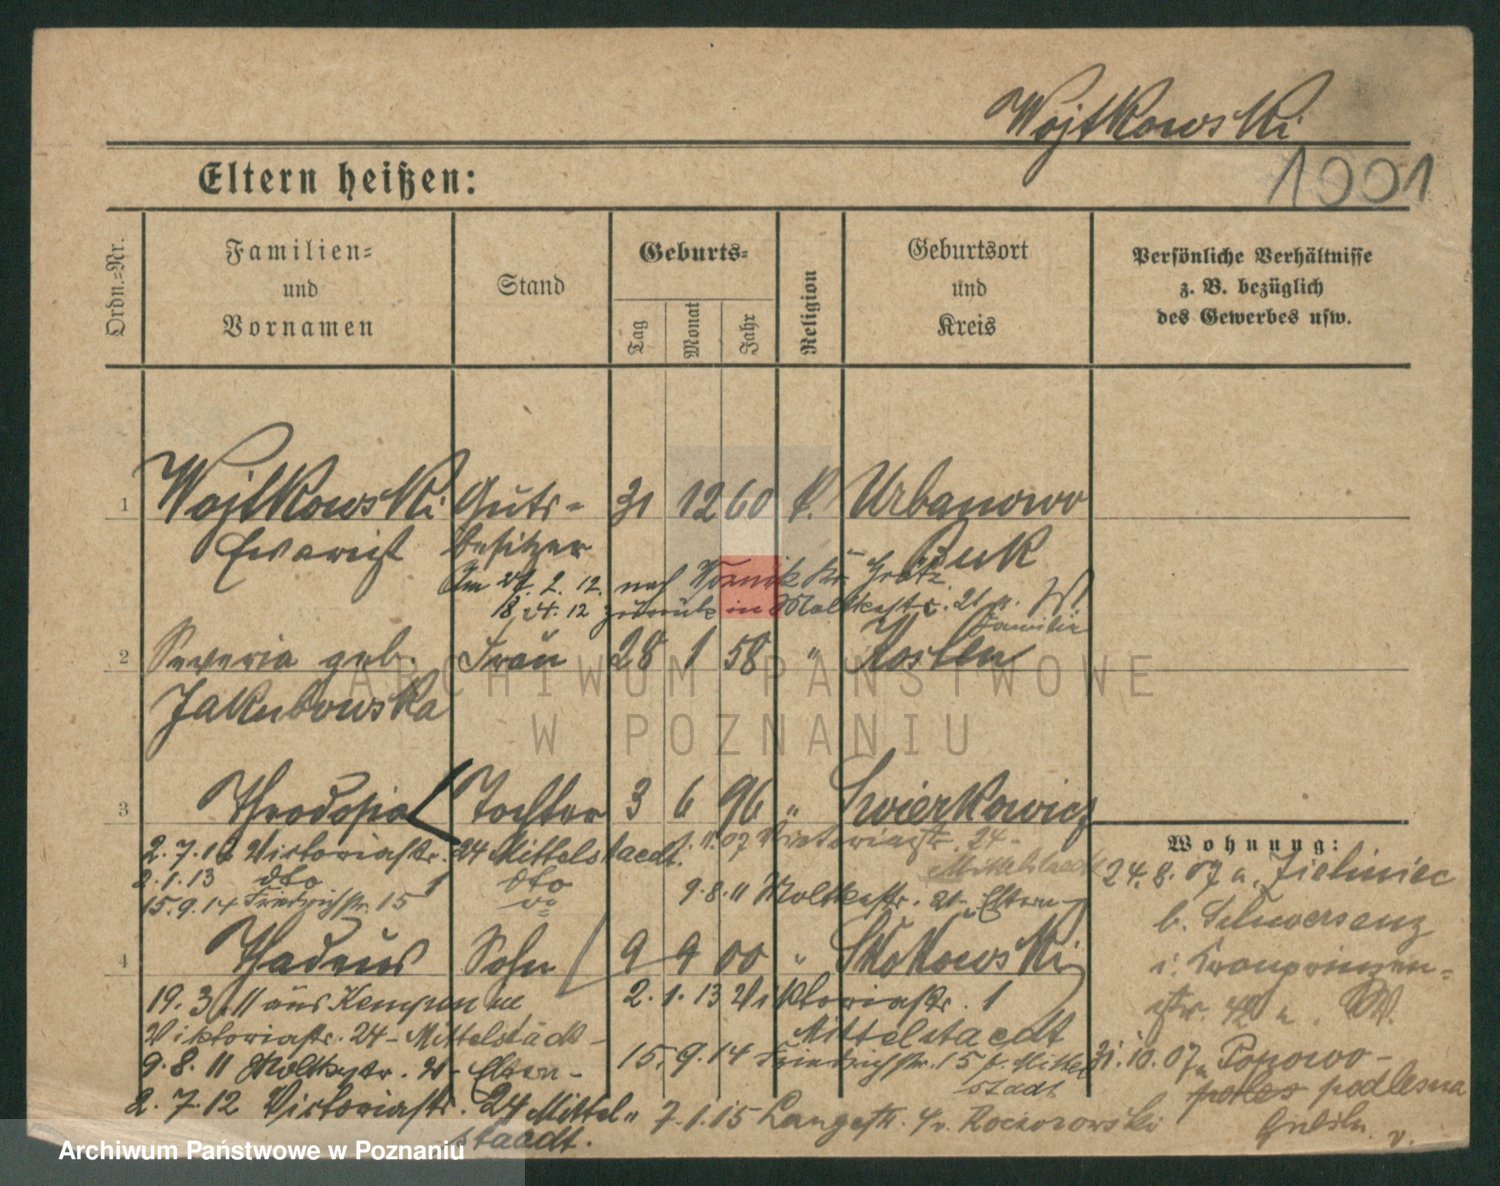 Wojtkowski
1001
Eltern heißen:
Ordn.-Nr.
Familien-
und
Vornamen
Stand
Geburts-
Tag
Monat
Jahr
Religion
Geburtsort
und
Kreis
Persönliche Verhältnisse
z. B. bezüglich
des Gewerbes usw.
1 Wojtkowski Guts- 31 12 60 k. Urbanowo
Evarist besitzer Buk
2. 12. nach Kr. Grätz
18. 12 zurück in Moltkestr. 21
Familie
2 Severia geb. Frau 28 1 58 " Kosten
Jakubowska
ARCHIWUM PAŃSTWOWE
W POZNANIU
3 Theodosia Tochter 3 6 96 " Swierkowicz
2.7.12 Victoriastr. 24 Mittelstaedt. 1.11.07 Victoriastr. 24 -
Mittelstaedt
2.1.13 dto 1 dto
9.8.11 Moltkestr. 21 Eltern
15.9.14 Friedrichstr. 15
4 Thadeus Sohn 9 9 00 " Skokowski
19.3.11 aus Kempen
Viktoriastr. 24 - Mittelstädt -
9.8.11 Moltkestr. 21 Eltern -
2.7.12 Victoriastr. 24 Mittel-
staedt.
2.1.13 Viktoriastr. 1
Mittelstaedt
15.9.14 Friedrichstr. 15 b. Mittel
stadt
7.1.15 Langestr. 4 v.
Wohnung:
24.8.07 a. Zieliniec
b. Schwersenz
i. Kronprinzen-
str. 42 a. W.
31.10.07 Popowo-
podlesna
Archiwum Państwowe w Poznaniu